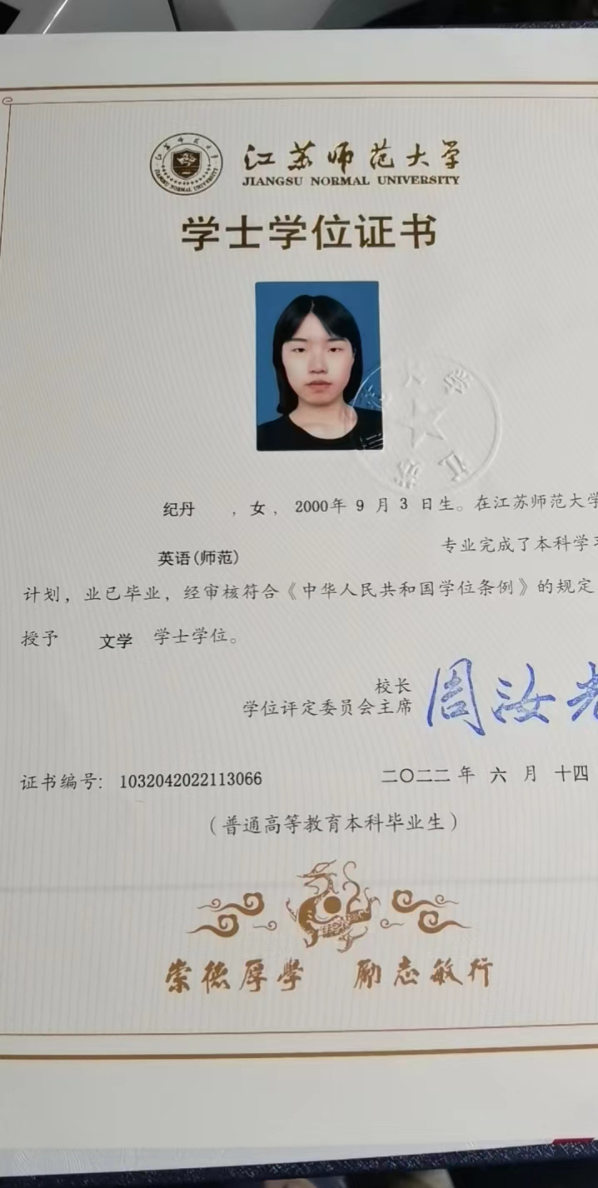 江苏师范大学
JIANGSU NORMAL UNIVERSITY
学士学位证书
纪丹 ，女，2000年 9 月 3 日生。在江苏师范大学
英语(师范) 专业完成了本科学习
计划，业已毕业，经审核符合《中华人民共和国学位条例》的规定
授予 文学 学士学位。
校长
学位评定委员会主席
周汝光
证书编号：1032042022113066
二〇二二年 六 月 十四
（普通高等教育本科毕业生）
崇德厚学 励志敏行